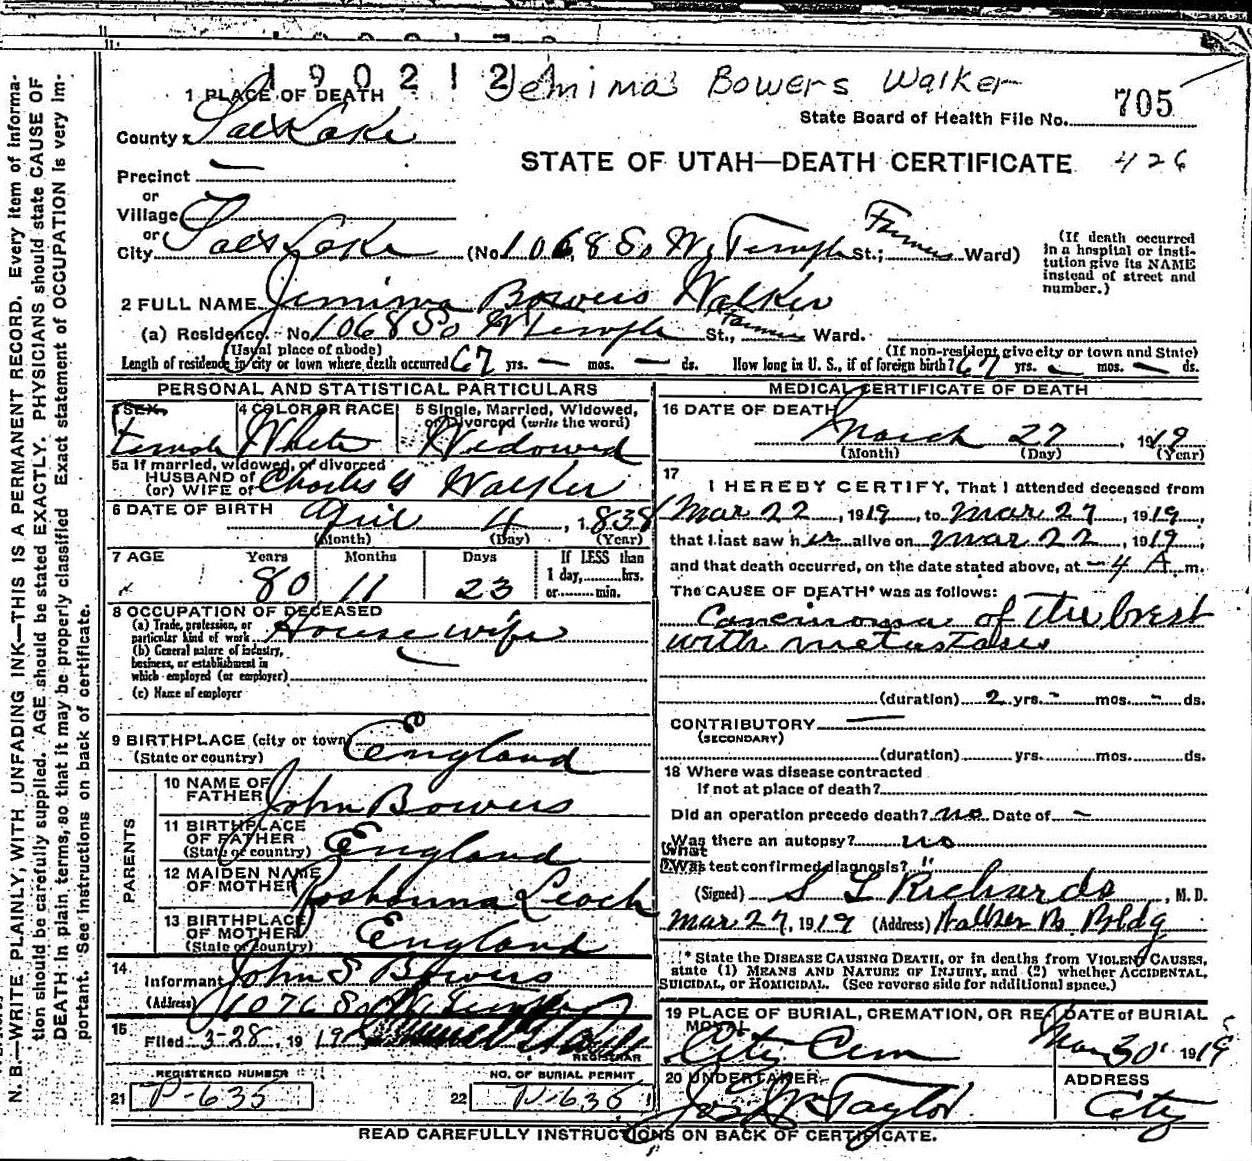 190212 Jemima Bowers Walker
1 PLACE OF DEATH
County Salt Lake
State Board of Health File No. 705
STATE OF UTAH—DEATH CERTIFICATE 426
Precinct —
or
Village
or
City Salt Lake (No. 1068 So W. Temple St.; Farmers Ward)
(If death occurred in a hospital or insti-
tution give its NAME
instead of street and
number.)
2 FULL NAME Jemima Bowers Walker
(a) Residence. No. 1068 So W Temple St., Farmers Ward.
(Usual place of abode) (If non-resident give city or town and State)
Length of residence in city or town where death occurred 67 yrs. — mos. — ds. How long in U. S., if of foreign birth? 67 yrs. — mos. — ds.
PERSONAL AND STATISTICAL PARTICULARS
3 SEX Female
4 COLOR OR RACE White
5 Single, Married, Widowed,
or Divorced (write the word)
Widowed
5a If married, widowed, or divorced
HUSBAND of
(or) WIFE of Charles G Walker
6 DATE OF BIRTH April 4, 1838
(Month) (Day) (Year)
7 AGE Years Months Days If LESS than
1 day,......hrs.
or......min.
80 11 23
8 OCCUPATION OF DECEASED
(a) Trade, profession, or
particular kind of work House wife
(b) General nature of industry,
business, or establishment in
which employed (or employer)
(c) Name of employer
9 BIRTHPLACE (city or town)
(State or country) England
PARENTS
10 NAME OF
FATHER John Bowers
11 BIRTHPLACE
OF FATHER
(State or country) England
12 MAIDEN NAME
OF MOTHER Roshanna Leach
13 BIRTHPLACE
OF MOTHER
(State or country) England
14
Informant John S Bowers
(Address) 1076 So W. Temple
15
Filed 3-28, 1919
REGISTRAR
REGISTERED NUMBER
21 P-635
NO. OF BURIAL PERMIT
22 N-635
MEDICAL CERTIFICATE OF DEATH
16 DATE OF DEATH
March 27, 1919
(Month) (Day) (Year)
17
I HEREBY CERTIFY, That I attended deceased from
Mar 22, 1919, to Mar 27, 1919,
that I last saw her alive on Mar 22, 1919,
and that death occurred, on the date stated above, at 4 A m.
The CAUSE OF DEATH* was as follows:
Carcinoma of the brest
with metastases
(duration) 2 yrs. - mos. - ds.
CONTRIBUTORY —
(SECONDARY)
(duration) yrs. mos. ds.
18 Where was disease contracted
If not at place of death?
Did an operation precede death? no Date of –
Was there an autopsy? no
What
Was test confirmed diagnosis? "
(Signed) S L Richards, M. D.
Mar 27, 1919 (Address) Walker B. Bldg
* State the DISEASE CAUSING DEATH, or in deaths from VIOLENT CAUSES,
state (1) MEANS AND NATURE OF INJURY, and (2) whether ACCIDENTAL,
SUICIDAL, or HOMICIDAL. (See reverse side for additional space.)
19 PLACE OF BURIAL, CREMATION, OR RE-
MOVAL
City Cem
DATE of BURIAL
Mar 30 1919
20 UNDERTAKER
Jos Wm Taylor
ADDRESS
City
READ CAREFULLY INSTRUCTIONS ON BACK OF CERTIFICATE.
N. B.—WRITE PLAINLY, WITH UNFADING INK—THIS IS A PERMANENT RECORD. Every item of informa-
tion should be carefully supplied. AGE should be stated EXACTLY. PHYSICIANS should state CAUSE OF
DEATH in plain terms, so that it may be properly classified. Exact statement of OCCUPATION is very im-
portant. See instructions on back of certificate.